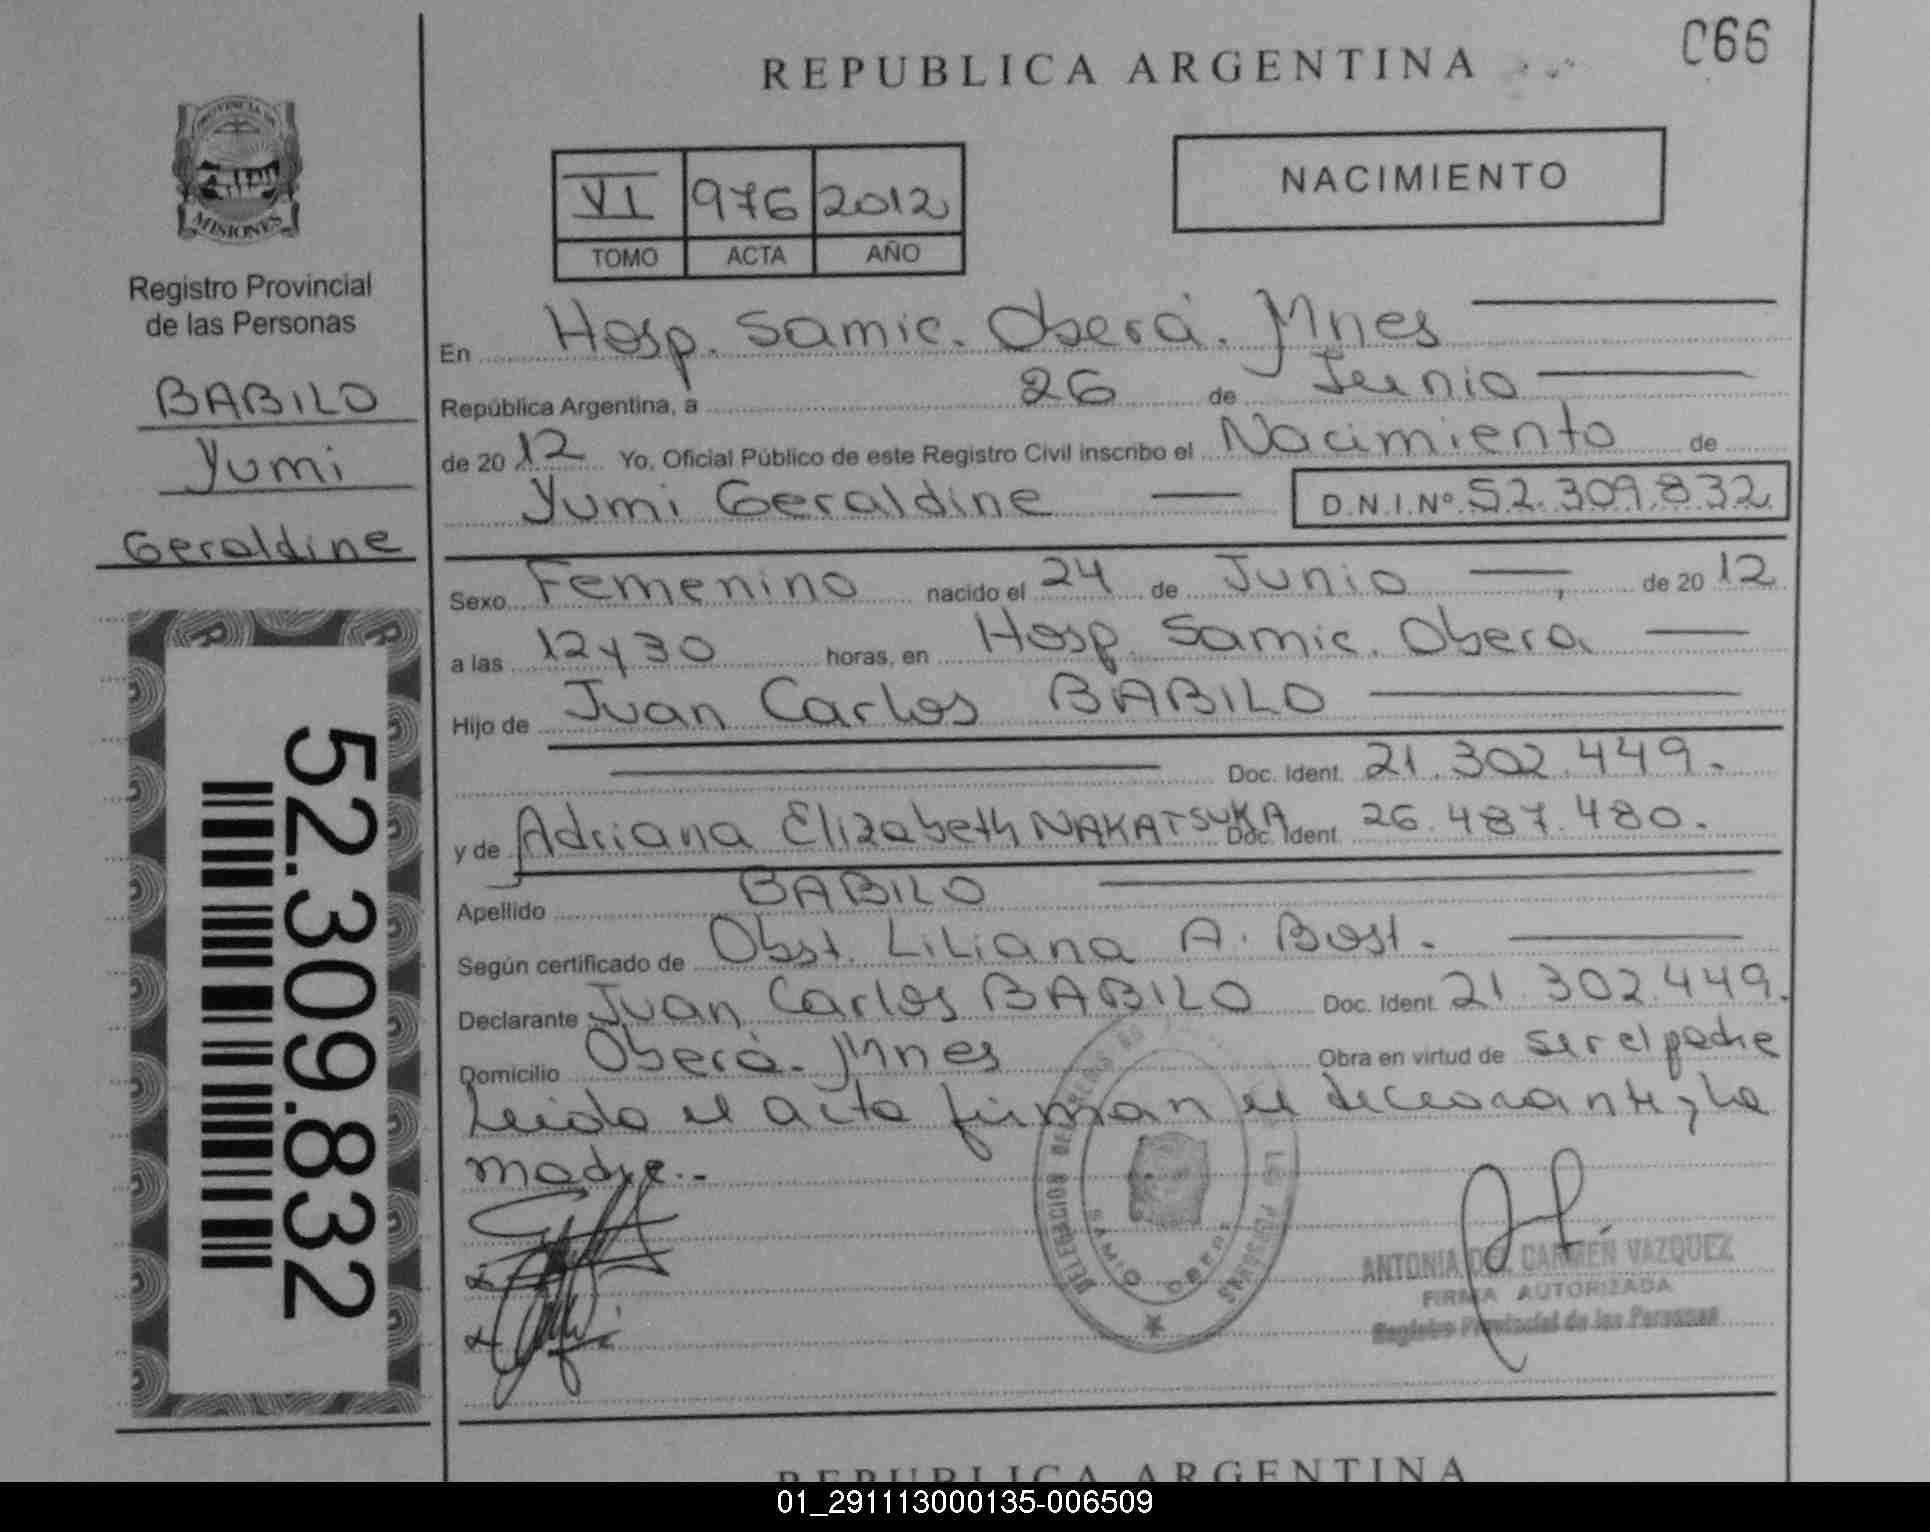 C66
REPUBLICA ARGENTINA
PROVINCIA DE
MISIONES
Registro Provincial
de las Personas
BABILO
Yumi
Geraldine
52.309.832
VI 976 2012
TOMO ACTA AÑO
NACIMIENTO
En Hosp. Samic. Oberá. Mnes
República Argentina, a 26 de Junio
de 2012 Yo, Oficial Público de este Registro Civil inscribo el Nacimiento de
Yumi Geraldine D.N.I.Nº 52.309.832
Sexo Femenino nacido el 24 de Junio de 2012
a las 12 y 30 horas, en Hosp. Samic. Obera
Hijo de Juan Carlos BABILO
Doc. Ident. 21.302.449.
y de Adriana Elizabeth NAKATSUKA Doc. Ident. 26.487.480.
Apellido BABILO
Según certificado de Obst. Liliana A. Bost.
Declarante Juan Carlos BABILO Doc. Ident. 21.302.449.
Domicilio Oberá. Mnes Obra en virtud de ser el padre
Leido el acta firman el declarante y la
madre.-
SAMIC OBERA
ANTONIA DEL CARMEN VAZQUEZ
FIRMA AUTORIZADA
Registro Provincial de las Personas
REPUBLICA ARGENTINA
01_291113000135-006509